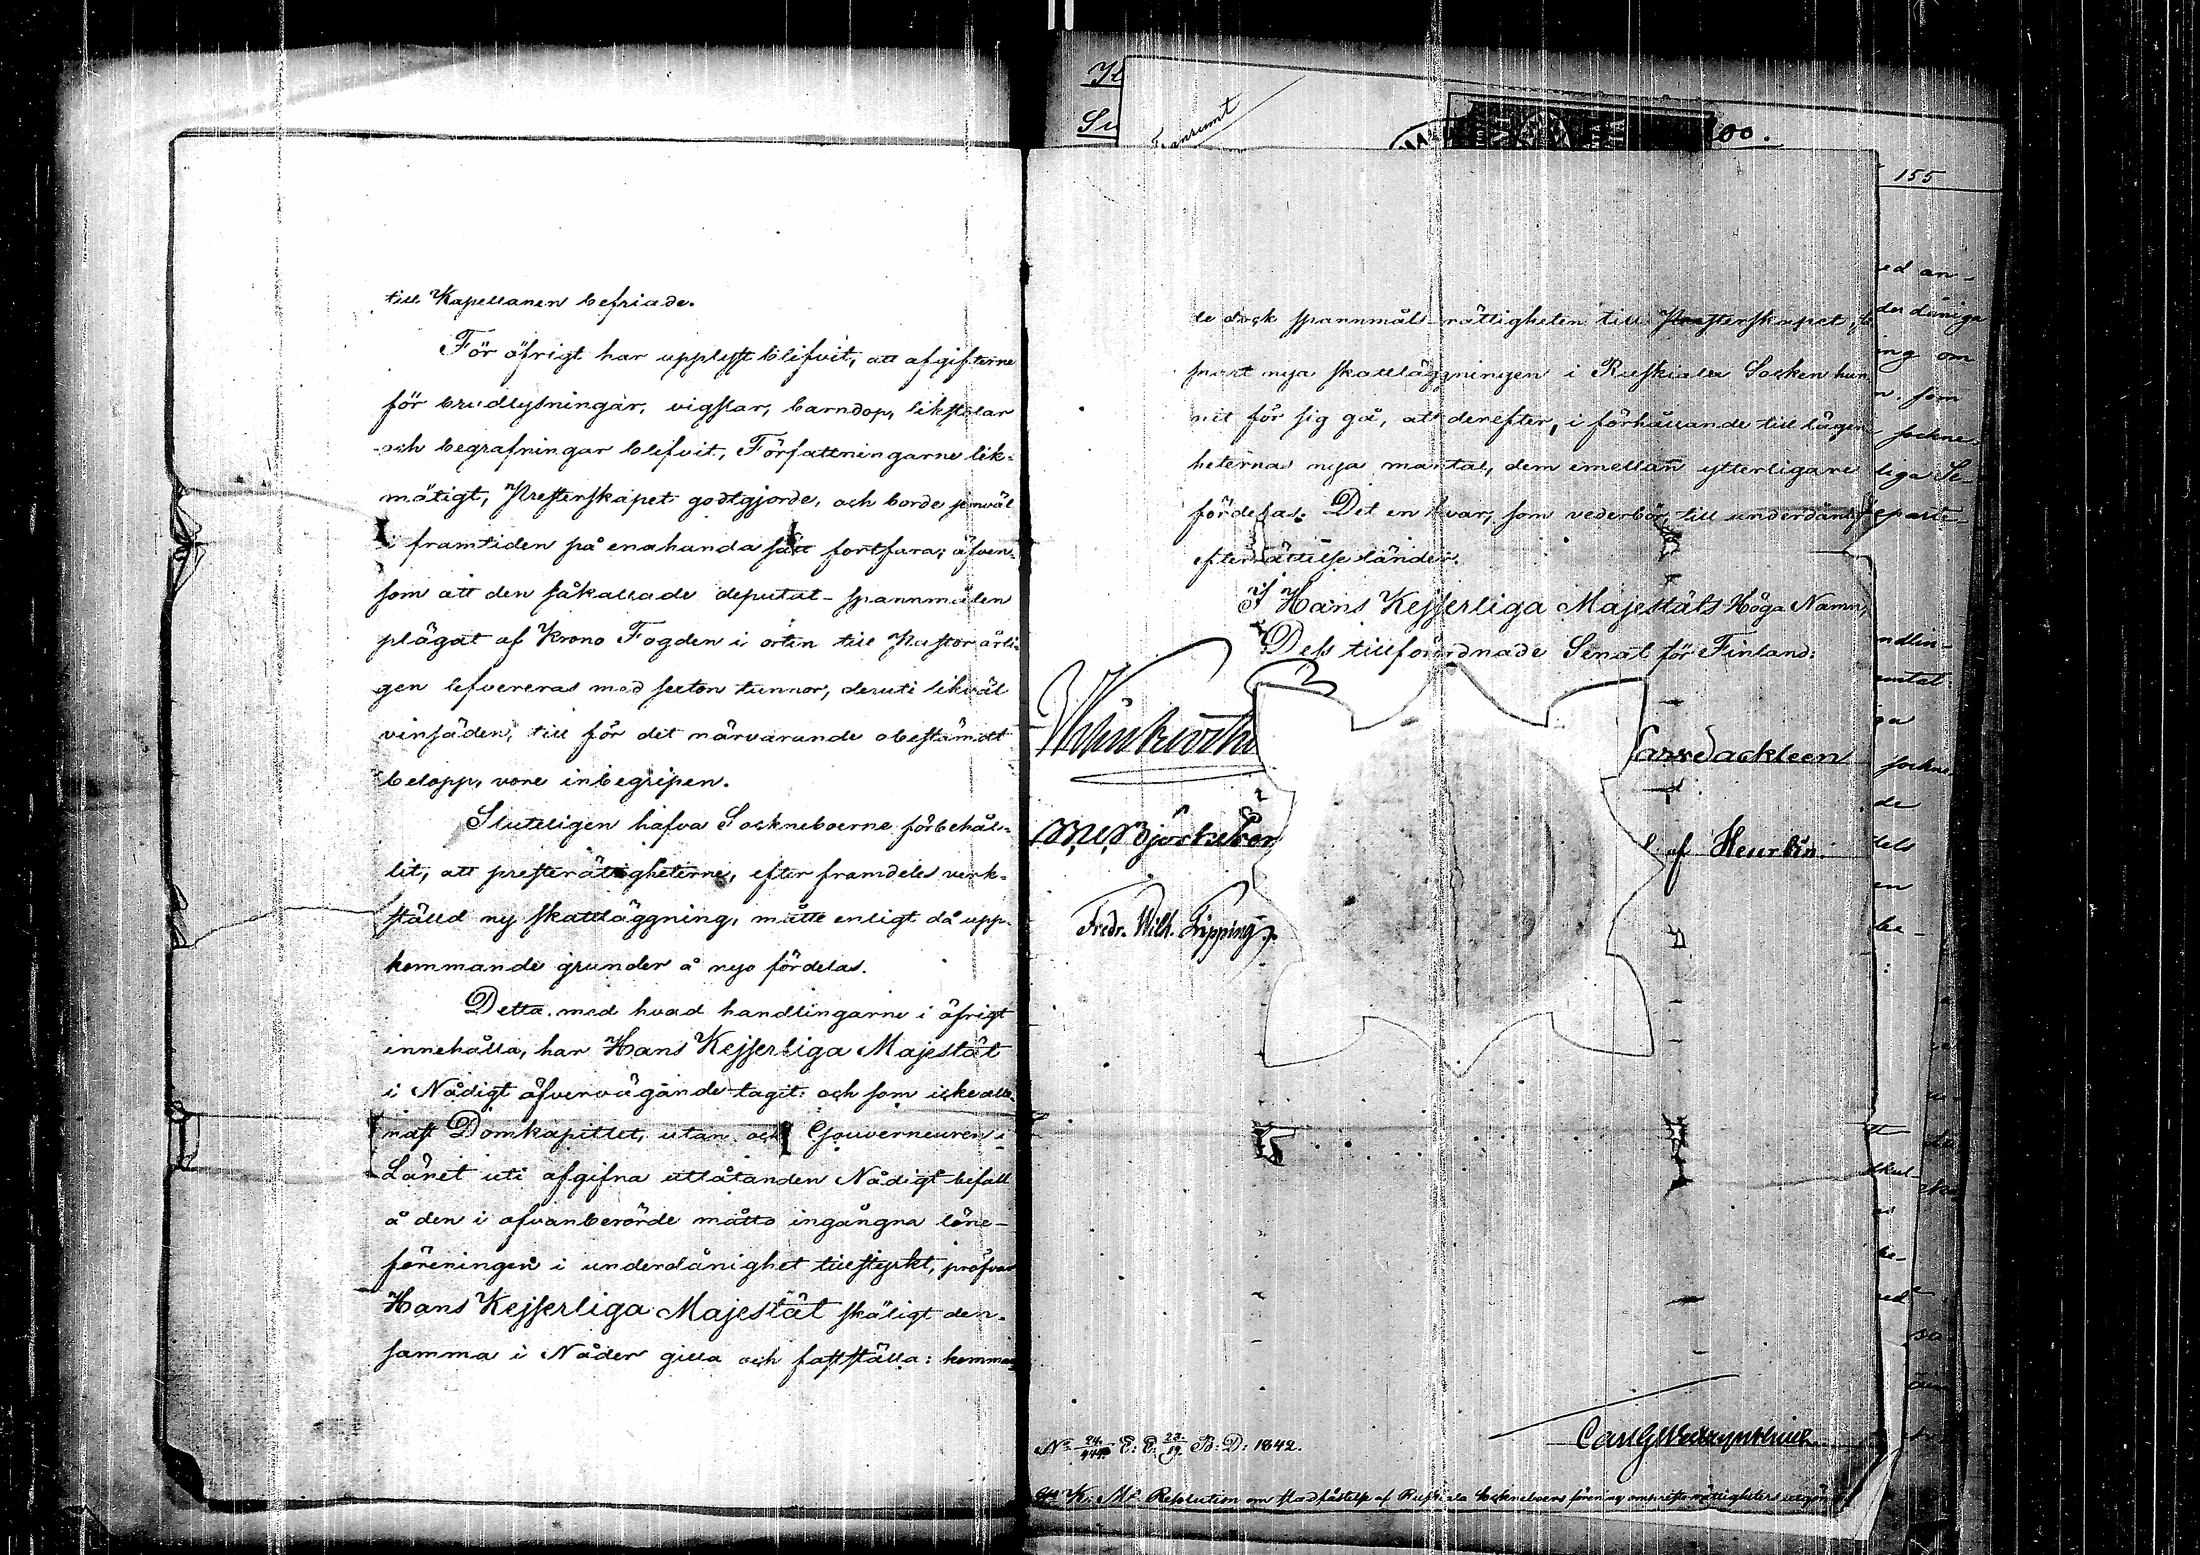 till Kapellanen befriade.
För öfrigt har upplyst blifvit, att afgifterne
för brudlysningar, vigslar, barndop, likstolar
och begrafningar blifvit, Författningarne lik-
mätigt, Presterskapet godtgjorde, och borde jemväl
i framtiden på enahanda sätt fortfara; äfven-
som att den såkallade deputat-spannmålen
plägat af Krono Fogden i orten till Pastor årli-
gen lefvereras med sexton tunnor, deruti likväl
vinsäden, till för det närvarande obestämdt
belopp, vore inbegripen.
Slutligen hafva Sockneboerne förbehål-
lit, att presterättigheterne, efter framdeles verk-
ställd ny skattläggning, måtte enligt då upp-
kommande grunder å nyo fördelas.
Detta med hvad handlingarne i öfrigt
innehålla, har Hans Kejserliga Majestät
i Nådigt öfvervägande tagit: och som icke alle-
nast Domkapitlet, utan ock Gouverneuren i
Länet uti afgifna utlåtanden Nådigt befall
å den i ofvanberörde måtto ingångna löne-
föreningen i underdånighet tillstyrkt, pröfvar
Hans Kejserliga Majestät skäligt den-
samma i Nåder gilla och fastställa: komman
Transumt
00.
155
de dock spannmåls-rättigheten till Presterskapet, så
snart nya skattläggningen i Ruskiala Socken hun
nit för sig gå, att derefter, i förhållande till lägen
heternas nya mantal, dem emellan ytterligare
fördelas. Det en hvar, som vederbör, till underdånig
efterrättelse länder.
I Hans Kejserliga Majestäts Höga Namn,
Dess tillförordnade Senat för Finland:
Lars Sackleen
Björksten
af Heurlin
Fredr. Wilh. Pipping
No 24/444 E. E. 23/19 B. D. 1842.
K. Mts Resolution om stadfästelse af Ruskiala Sockneboers förening om presterättigheters utgö